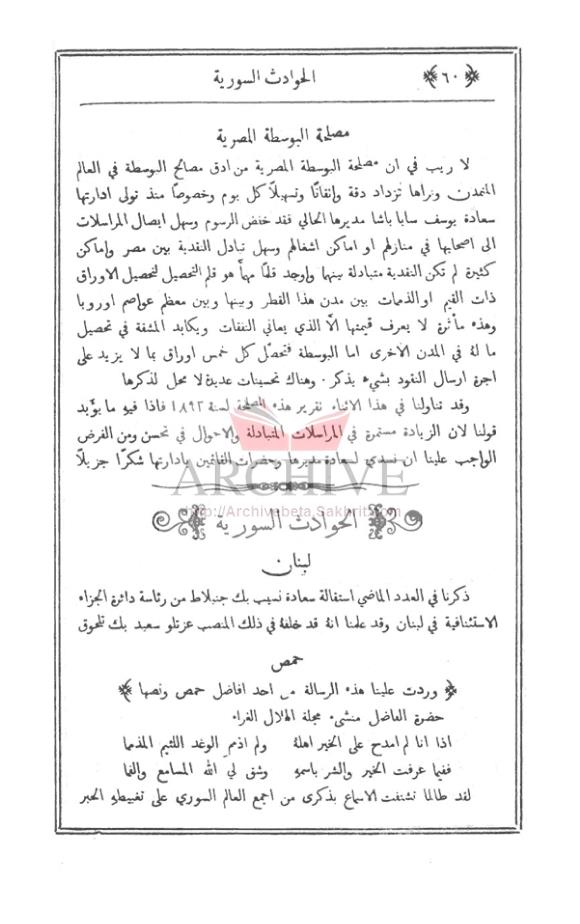 ﴿ ٦٠ ﴾ الحوادث السورية
مصلحة البوسطة المصرية
لا ريب في ان مصلحة البوسطة المصرية من ادق مصالح البوسطة في العالم
المتمدن ونراها تزداد دقة واتقانًا وتسهيلًا كل يوم وخصوصًا منذ تولى ادارتها
سعادة يوسف سابا باشا مديرها الحالي فقد خفض الرسوم وسهل ايصال المراسلات
الى اصحابها في منازلهم او اماكن اشغالهم وسهل تبادل النقدية بين مصر واماكن
كثيرة لم تكن النقدية متبادلة بينها واوجد قلمًا مهمًا هو قلم التحصيل لتحصيل الاوراق
ذات القيم او الذمات بين مدن هذا القطر وبينها وبين معظم عواصم اوروبا
وهذه مأثرة لا يعرف قيمتها الَّا الذي يعاني النفقات ويكابد المشقة في تحصيل
ما لهُ في المدن الاخرى اما البوسطة فتحصّل كل خمس اوراق بما لا يزيد على
اجرة ارسال النقود بشيء يذكر. وهناك تحسينات عديدة لا محل لذكرها
وقد تناولنا في هذا الاثناء تقرير هذه المصلحة لسنة ١٨٩٢ فاذا فيهِ ما يؤّيد
قولنا لان الزيادة مستمرة في المراسلات المتبادلة والاحوال في تحسن ومن الفرض
الواجب علينا ان نسدي لسعادة مديرها وحضرات القائمين بادارتها شكرًا جزيلًا
ARCHIVE
http://Archivebeta.Sakhrit.com
الحوادث السورية
لبنان
ذكرنا في العدد الماضي استقالة سعادة نسيب بك جنبلاط من رئاسة دائرة الجزاء
الاستئنافية في لبنان وقد علمنا انهُ قد خلفهُ في ذلك المنصب عزتلو سعيد بك تلحوق
حمص
﴿ وردت علينا هذه الرسالة من احد افاضل حمص ونصها ﴾
حضرة الفاضل منشىء مجلة الهلال الغراء
اذا انا لم امدح على الخير اهلهُ ولم اذمم الوغد اللئيم المذمما
ففيما عرفت الخير والشر باسمهِ وشق لي الله المسامع والفما
لقد طالما تشنفت الاسماع بذكرى من اجمع العالم السوري على تغبيطهِ الحبر